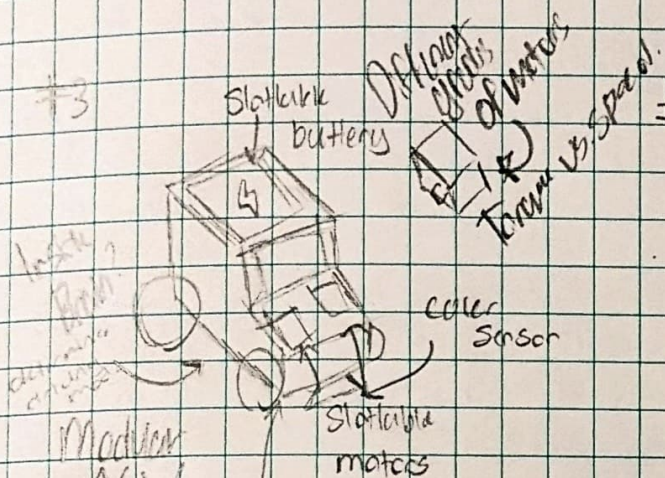 #3
Slotable
battery
Different
of motors
Torque vs. Speed
Inside
Brain?
color
sensor
Slotable
motors
Modular